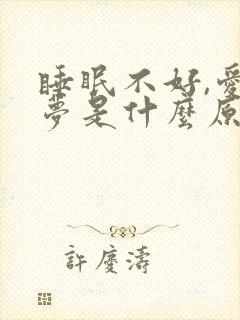 睡眠不好,愛
夢是什麼原
許慶濤